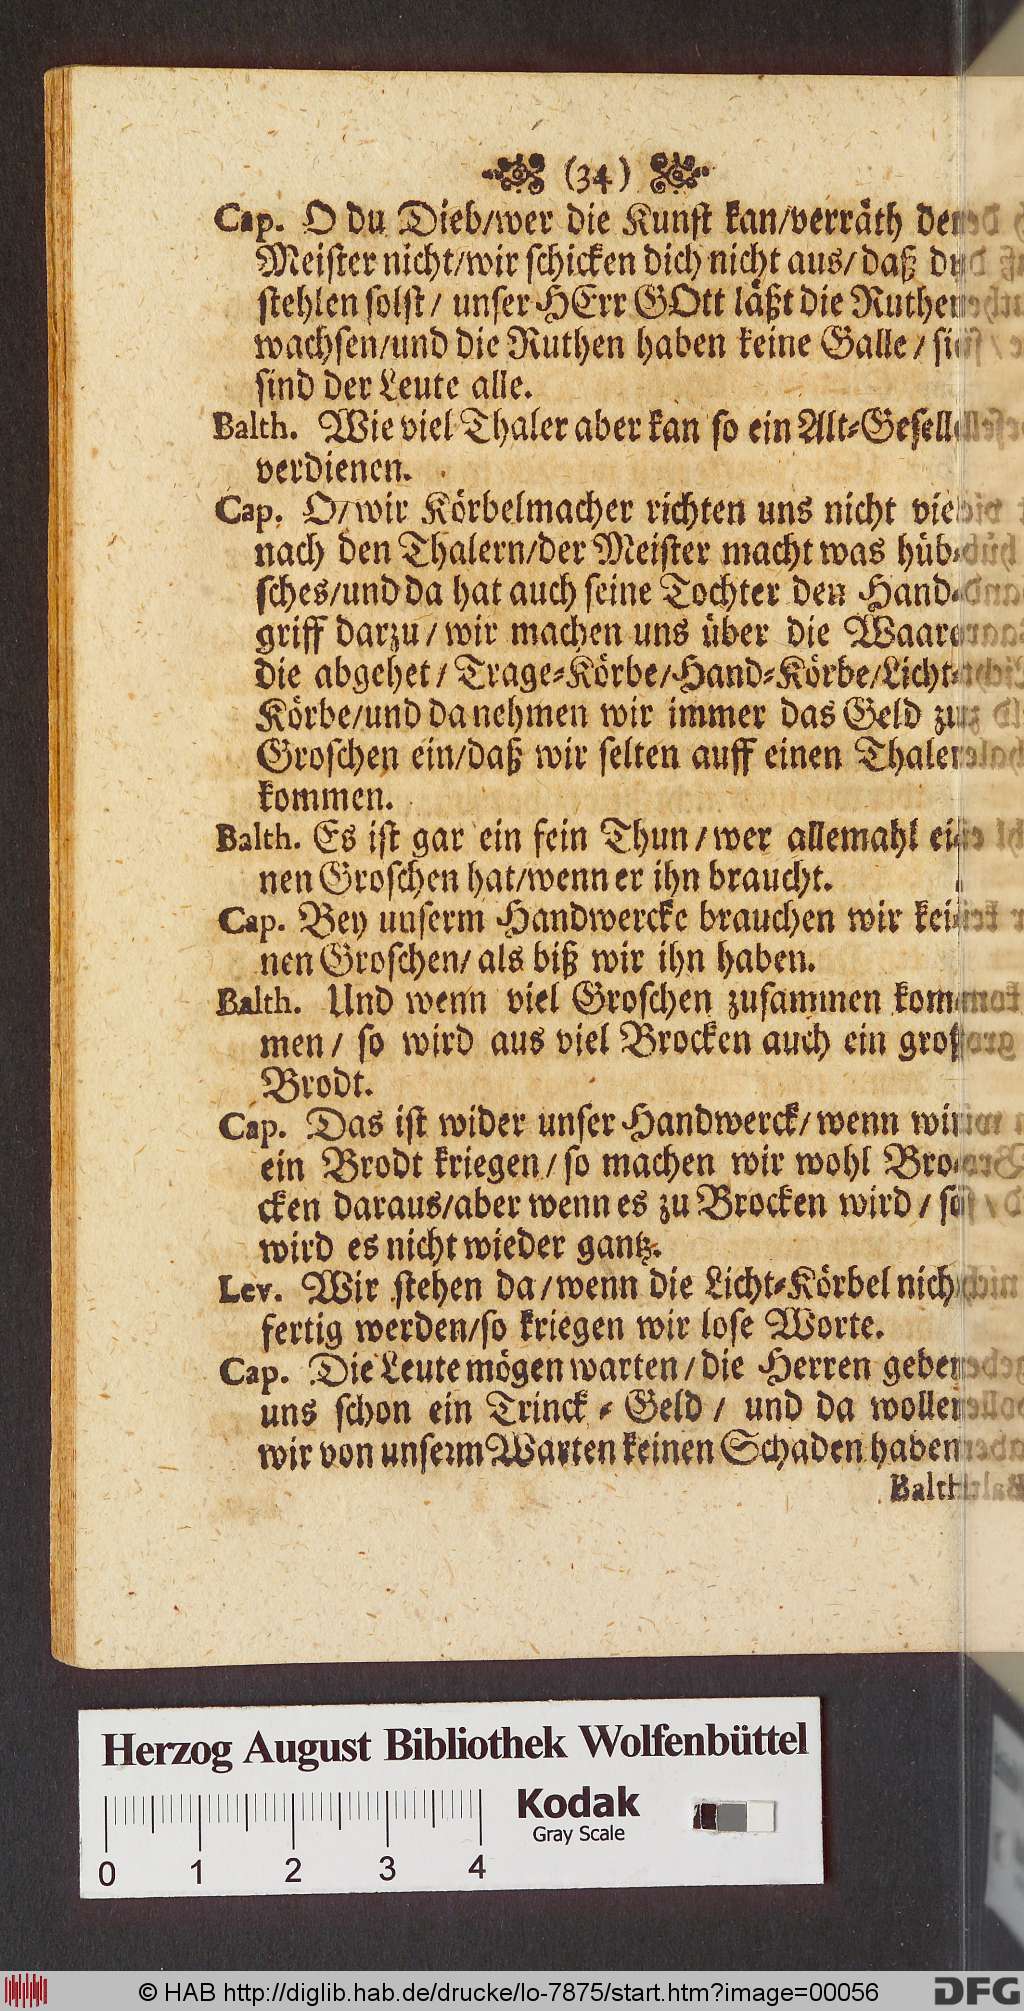 (34)
Cap. O du Dieb/wer die Kunst kan/verräth den
Meister nicht/wir schicken dich nicht aus/daß du
stehlen solst/ unser HErr GOtt läßt die Ruthen
wachsen/und die Ruthen haben keine Galle/ sie
sind der Leute alle.
Balth. Wie viel Thaler aber kan so ein Alt-Gesell
verdienen.
Cap. O/wir Körbelmacher richten uns nicht viel
nach den Thalern/der Meister macht was hüb-
sches/und da hat auch seine Tochter den Hand-
griff darzu/ wir machen uns über die Waare
die abgehet/ Trage-Körbe/Hand-Körbe/Licht-
Körbe/und da nehmen wir immer das Geld zu
Groschen ein/daß wir selten auff einen Thaler
kommen.
Balth. Es ist gar ein fein Thun/wer allemahl ei-
nen Groschen hat/wenn er ihn braucht.
Cap. Bey unserm Handwercke brauchen wir kei-
nen Groschen/als biß wir ihn haben.
Balth. Und wenn viel Groschen zusammen kom-
men/ so wird aus viel Brocken auch ein groß
Brodt.
Cap. Das ist wider unser Handwerck/wenn wir
ein Brodt kriegen/so machen wir wohl Bro-
cken daraus/aber wenn es zu Brocken wird/ so
wird es nicht wieder gantz.
Lev. Wir stehen da/wenn die Licht-Körbel nich
fertig werden/so kriegen wir lose Worte.
Cap. Die Leute mögen warten/die Herren geben
uns schon ein Trinck-Geld/ und da wollen
wir von unserm Warten keinen Schaden haben
Balth
Herzog August Bibliothek Wolfenbüttel
Kodak
Gray Scale
0 1 2 3 4
© HAB http://diglib.hab.de/drucke/lo-7875/start.htm?image=00056
DFG